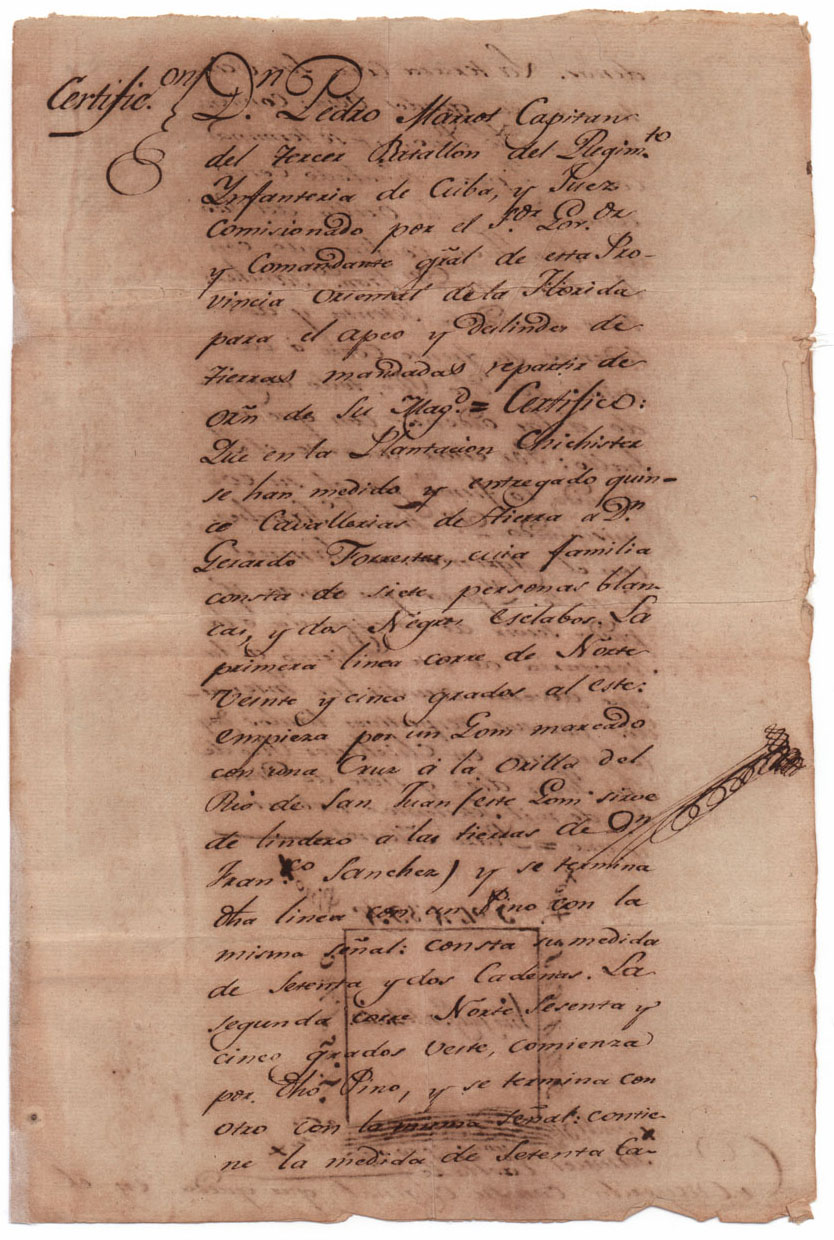 Certific.on
Dn D.n Pedro Marrot Capitan
del tercer Batallon del Regim.to
Ynfanteria de Cuba, y Juez
Comisionado por el S.or Gov.or
y Comandante gral de esta Pro-
vincia Oriental de la Florida
para el apeo y deslinde de
tierras mandadas repartir de
orn de Su Mag.d = Certifico:
Que en la Plantacion Chichister
se han medido y entregado quin=
ce Cavallerias de tierra a Dn
Gerardo Forrester, cuia familia
consta de siete personas blan-
cas, y dos Negros esclabos. La
primera linea corre de Norte
Veinte y cinco grados al este:
empieza por un Gom marcado
con una Cruz á la orilla del
Rio de San Juan (este Gom sirve
de lindero a las tierras de Dn
Fran.co Sanchez) y se termina
dha linea con un Pino con la
misma señal: consta su medida
de Setenta y dos Cadenas. La
segunda corre Norte Sesenta y
cinco grados Veste, comienza
por dho Pino, y se termina con
otro con la misma señal: contie-
ne la medida de Setenta Ca-